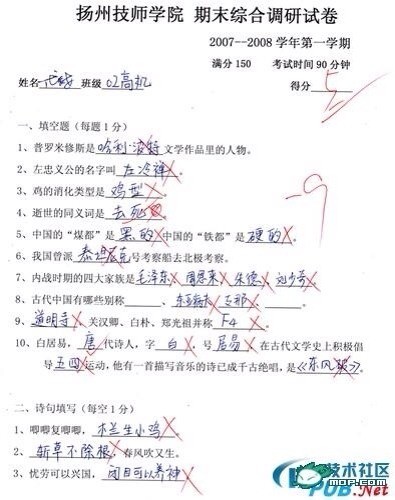 扬州技师学院 期末综合调研试卷
2007--2008 学年第一学期
满分 150 考试时间 90 分钟
姓名 班级 02高机 得分 5
一、填空题（每题 1 分）
1、普罗米修斯是哈利·波特文学作品里的人物。
2、左忠义公的名字叫 左冷禅。
3、鸡的消化类型是 鸡型。
4、逝世的同义词是 去死。
-9
5、中国的“煤都”是黑的，中国的“铁都”是硬的。
6、我国曾派 泰坦尼克号考察船去北极考察。
7、内战时期的四大家族是毛泽东、周恩来、朱德、
8、古代中国有哪些别称 、 、支那、 。
9、道明寺、关汉卿、白朴、郑光祖并称 F4。
10、白居易，唐代诗人，字 白，号 居易，在古代文学史上积极倡
导 五四运动，他有一首描写音乐的诗已成千古绝唱，是《东风破》。
二、诗句填写（每空 1 分）
1、唧唧复唧唧，木兰生小鸡。
2、斩草不除根，春风吹又生。
3、忧劳可以兴国，闭目可以养神
技术社区
PUB.Net